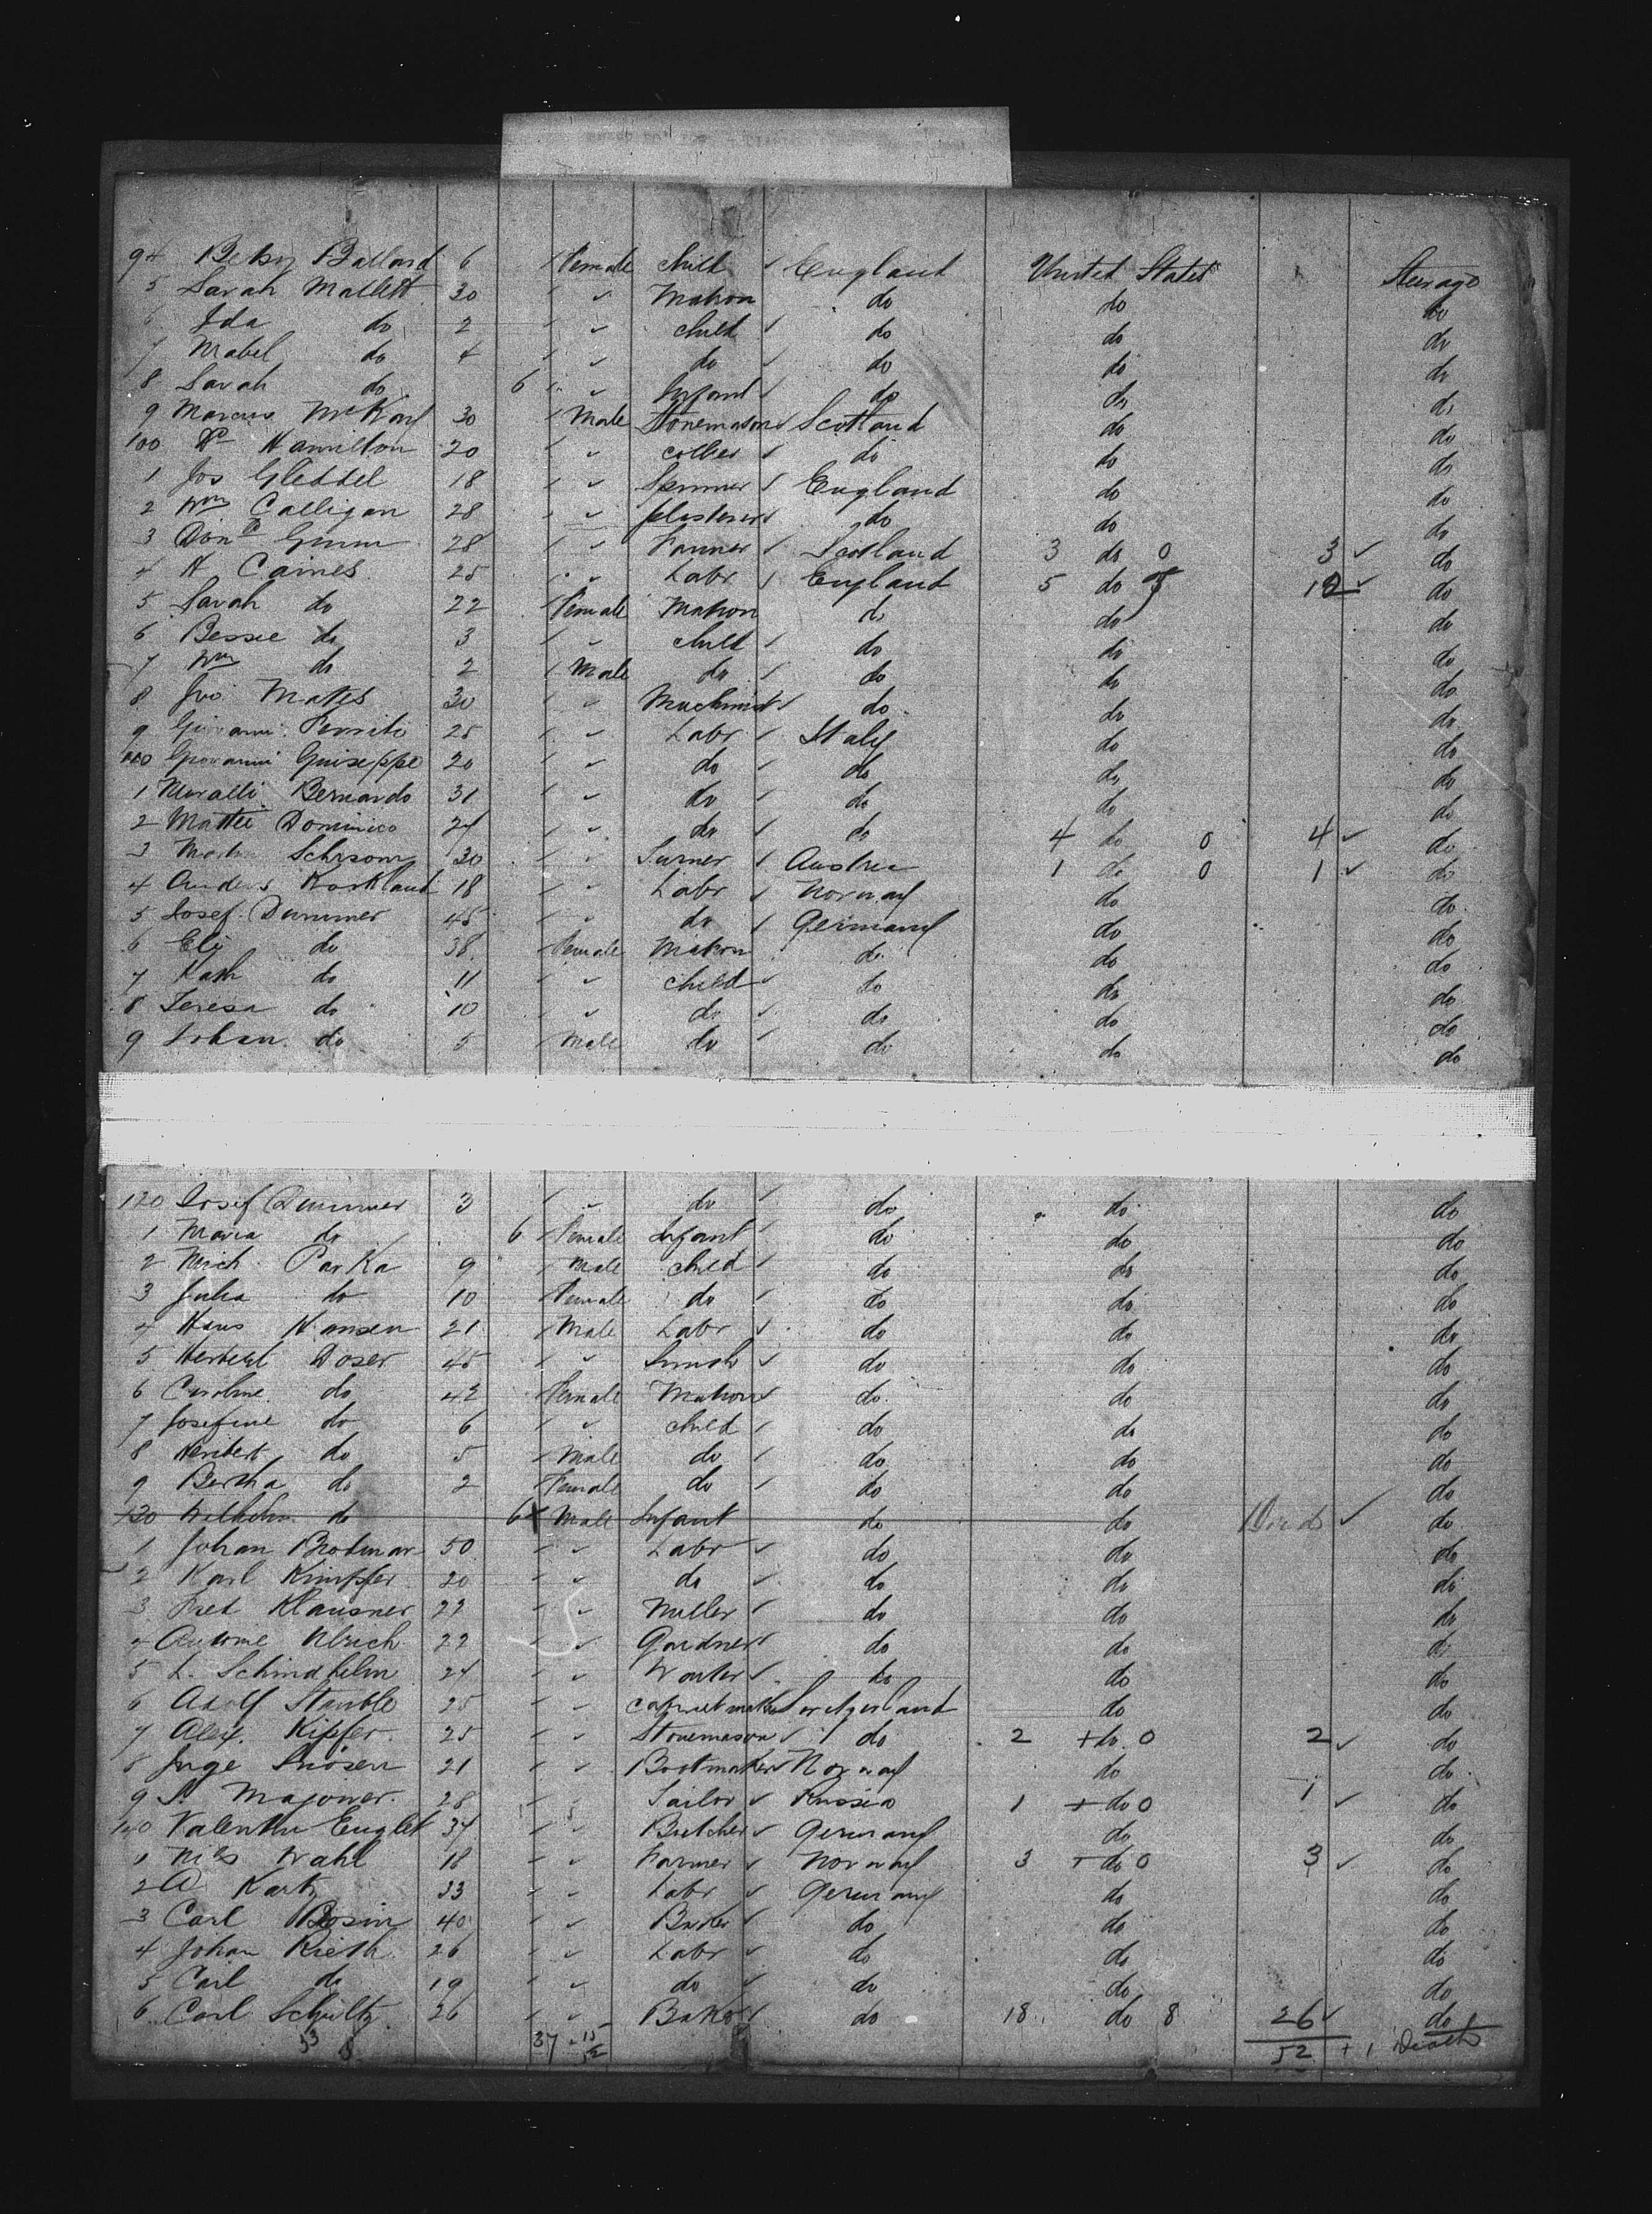 94 Betsy Ballard 6 / Female Child / England United States Steerage
5 Sarah Mallett 30 / " Matron do do do
6 Ida do 2 / " child / do do do
7 Mabel do 4 / " do / do do do
8 Sarah do 6 / " Infant / do do do
9 Marcus McKay 30 / Male Stonemason / Scotland do do
100 Wm Hamilton 20 / " collier / do do do
1 Jos Gleddel 18 / " Spinner / England do do
2 Wm Calligan 28 / " plasterer / do do do
3 Dond Gunn 28 / " Farmer / Scotland 3 do 0 3 ✓ do
4 H Caines 25 / " Labr / England 5 do 5 10 ✓ do
5 Sarah do 22 / Female Matron do do do
6 Bessie do 3 / " child / do do do
7 Wm do 2 / Male do / do do do
8 Jno Mates 30 / " Machinist / do do do
9 Giovanni 25 / " Labr / Italy do do
110 Giovanni Guiseppe 20 / " do / do do do
1 Bernardo 31 / " do / do do do
2 Mattei Dominico 24 / " do / do 4 do 0 4 ✓ do
3 30 / " Turner / Austria 1 do 0 1 ✓ do
4 Anders 18 / " Labr / Norway do do
5 Josef Dummer 45 / " do / Germany do do
6 do 38 / Female Matron do do do
7 Kath do 11 / " child / do do do
8 Teresa do 10 / " do / do do do
9 Johan do 5 / Male do / do do do
120 Josef Dummer 3 / " do / do do do
1 Maria do 6 / Female Infant / do do do
2 Mich Parka 9 / Male child / do do do
3 Julia do 10 / Female do / do do do
4 Hans Hansen 21 / Male Labr / do do do
5 Doser 45 / " Smith ✓ do do do
6 Caroline do 42 / Female Matron ✓ do do do
7 Josefine do 6 / " child / do do do
8 Heribert do 5 / Male do / do do do
9 Bertha do 2 / Female do / do do do
130 Wilhelm do 6 X Male Infant do do Died ✓ do
1 Johan 50 / " Labr ✓ do do do
2 Karl Kimpfer 20 / " do ✓ do do do
3 Fred Klausner 22 / " Miller / do do do
4 Antoine Ulrich 22 / " Gardner / do do do
5 L. Schindhelm 24 / " ✓ do do do
6 Adolf Stauble 25 / " cabinetmaker Switzerland do do
7 Alex. Kipfer 25 / " Stonemason / do 2 + do 0 2 ✓ do
8 Inge 21 / " Bootmaker Norway do do
9 28 / " Tailor ✓ Russia 1 + do 0 1 ✓ do
140 Valentin Englet 34 / " Butcher ✓ Germany do do
1 Nils Wahl 18 / " Farmer ✓ Norway 3 + do 0 3 ✓ do
2 A Kartz 33 / " Labr ✓ Germany do do
3 Carl Rosin 40 / " / do do do
4 Johan Rieth 26 / " Labr ✓ do do do
5 Carl do 19 / " do ✓ do do do
6 Carl Schultz 26 / " Baker / do 18 do 8 26 ✓ do
37 15 52 52 + 1 Death